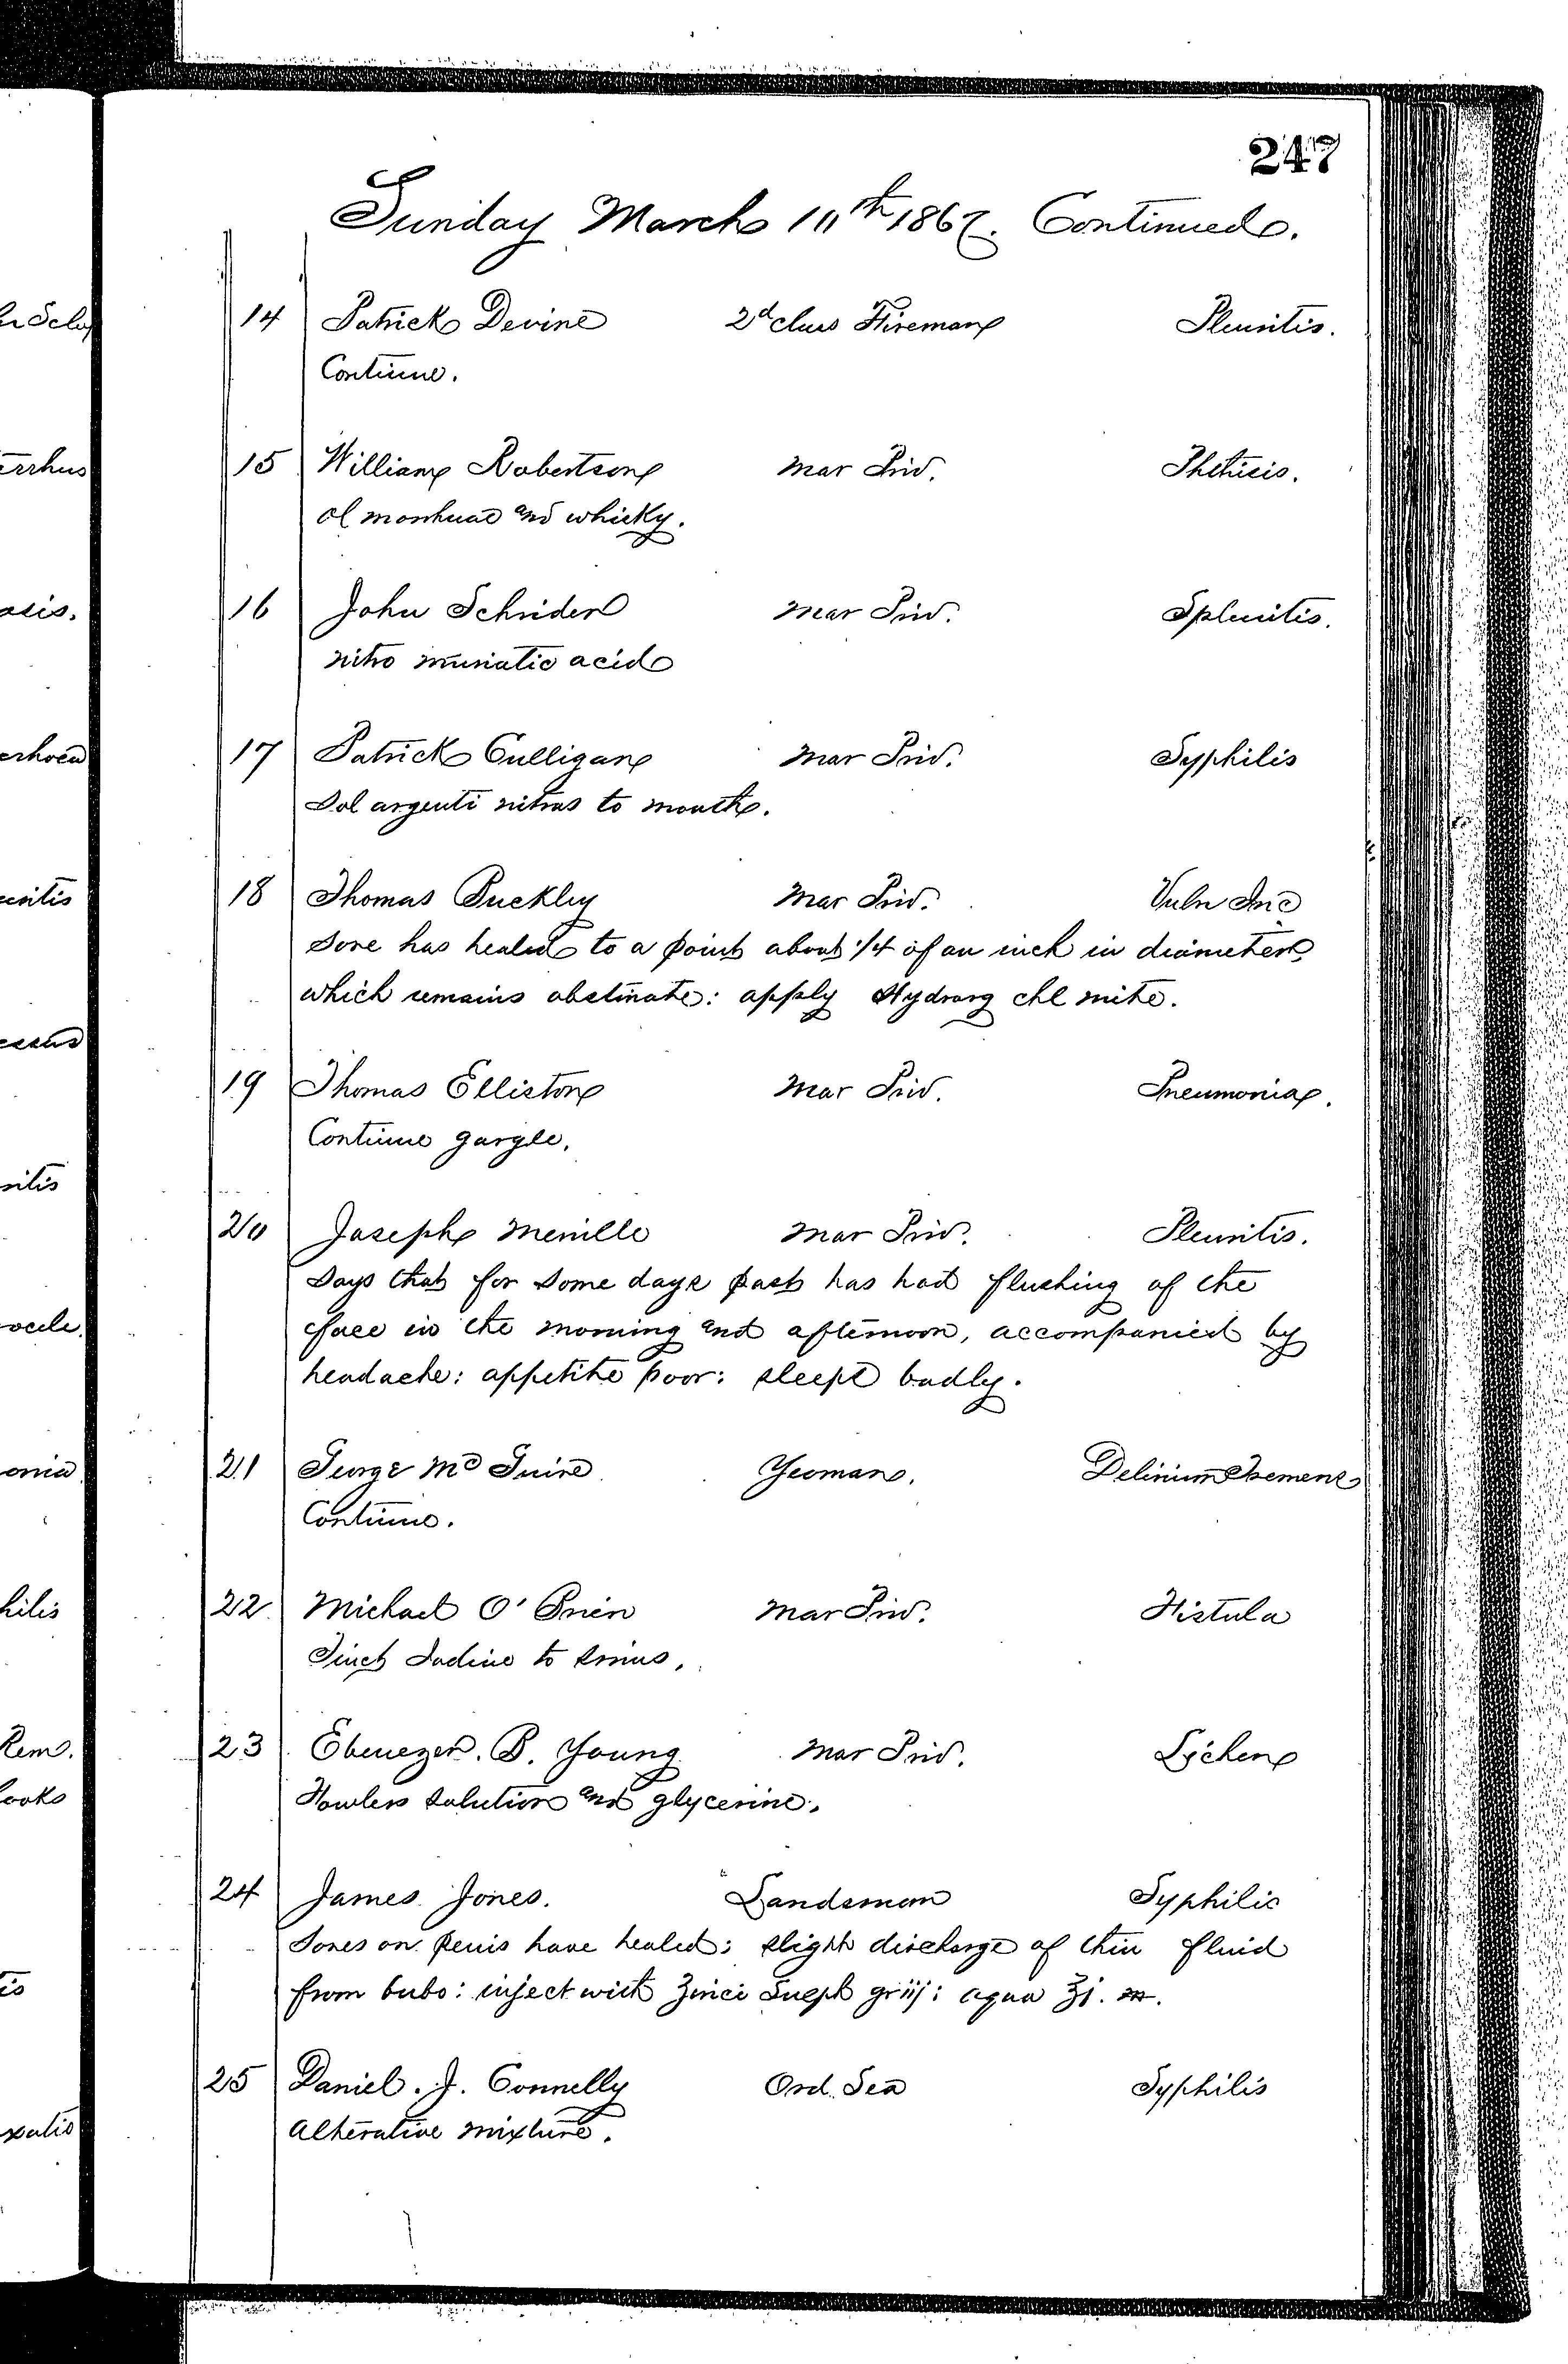 247
Sunday March 10th 1867. Continued.
14 Patrick Devine 2d class Fireman Pleuritis.
Continue.
15 William Robertson Mar Priv. Phthisis.
Ol morrhuae and whisky.
16 John Schrider Mar Priv. Splenitis.
Nitro muriatic acid
17 Patrick Culligan Mar Priv. Syphilis
Sol argenti nitras to mouth.
18 Thomas Buckley Mar Priv. Vuln Inc
Sore has healed to a point about 1/4 of an inch in diameter
which remains obstinate: apply Hydrarg chl mite.
19 Thomas Elliston Mar Priv. Pneumonia.
Continue gargle.
20 Joseph Merrille Mar Priv. Pleuritis.
Says that for some days past has had flushing of the
face in the morning and afternoon, accompanied by
headache: appetite poor: sleeps badly.
21 George McGuire Yeoman. Delirium Tremens
Continue.
22 Michael O'Brien Mar Priv. Fistula
Tinct Iodine to sinus.
23 Ebenezer. B. Young Mar Priv. Lichen
Fowlers solution and glycerine.
24 James Jones. Landsman Syphilis
Sores on penis have healed: slight discharge of thin fluid
from bubo: inject with Zinci Sulph griij: aqua ℥j. m.
25 Daniel. J. Connelly Ord. Sea Syphilis
Alterative mixture.